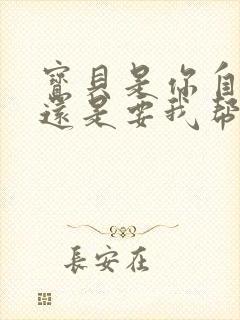 寶貝是你自
還是要我幫
長安在